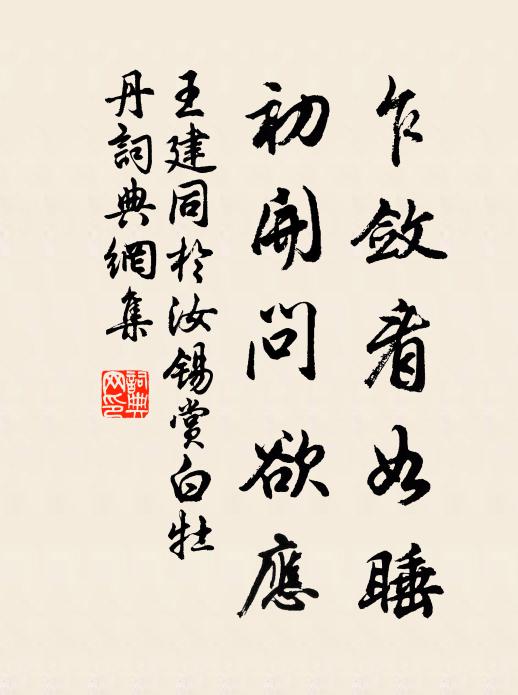 乍斂看如睡
初開問欲應
王建同於汝錫賞白牡
丹詞典網集
詞典
网印